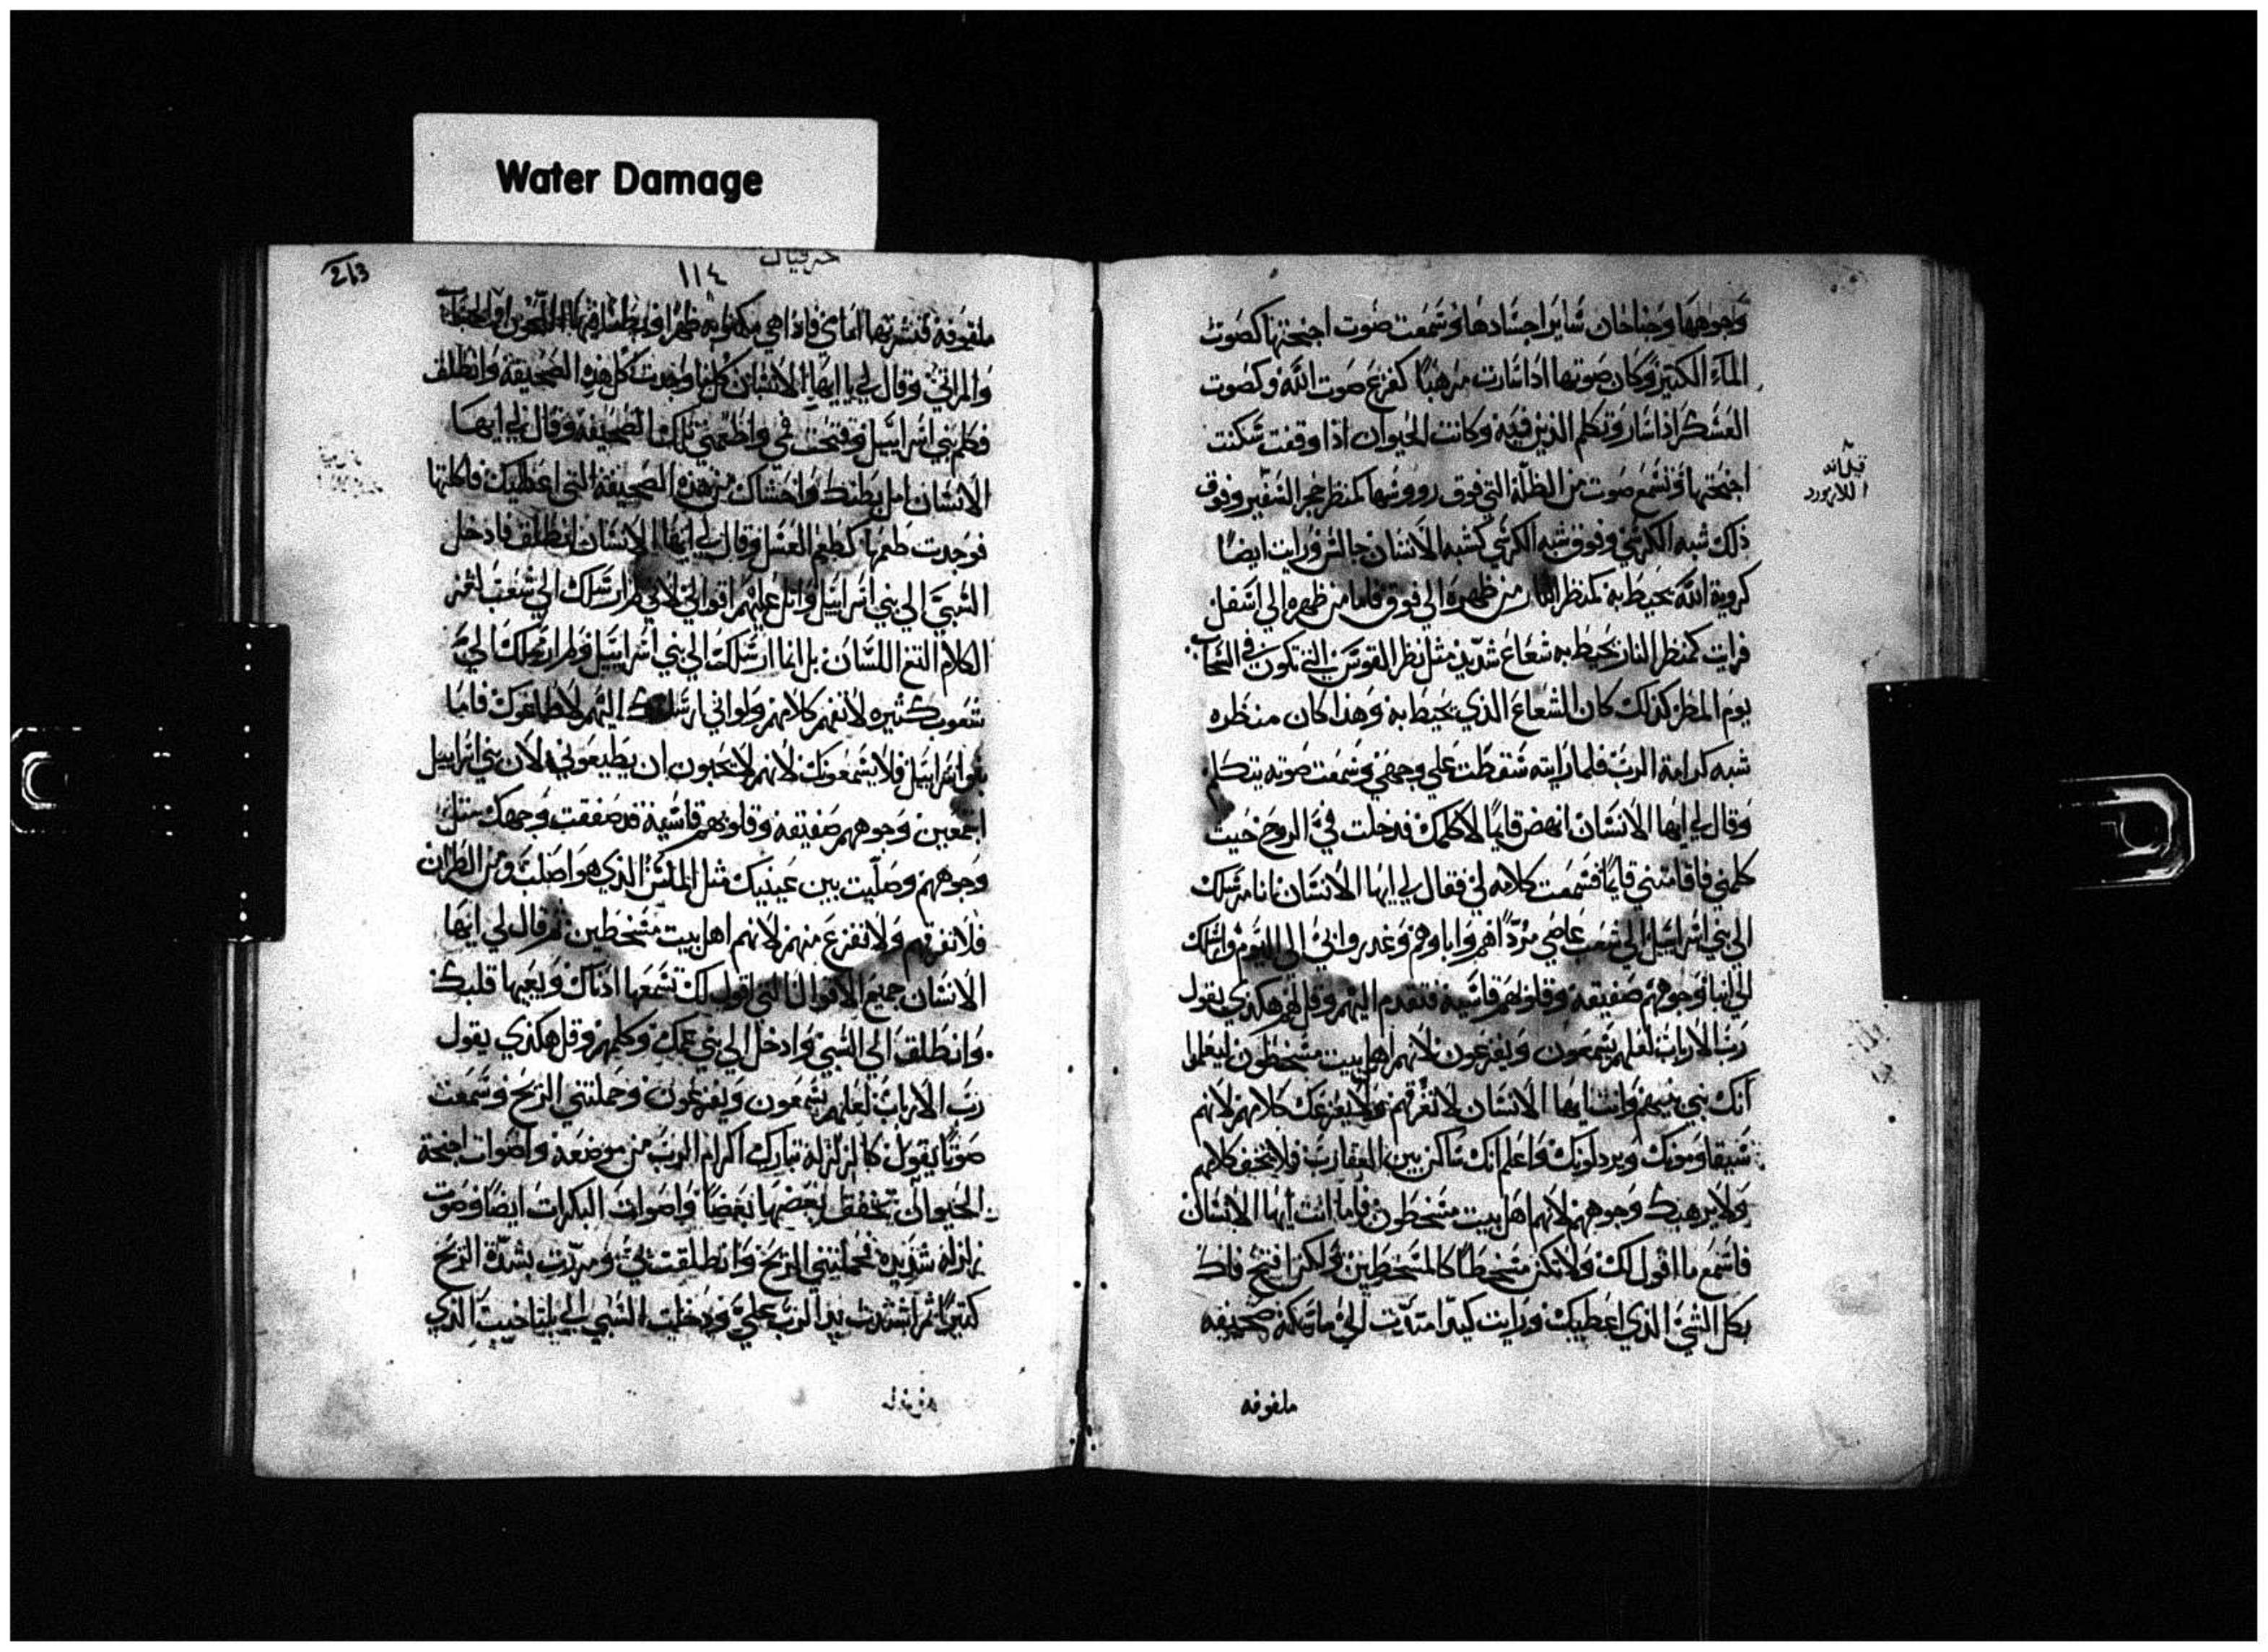 Water Damage
وجوهها وجناحان ساير اجسادها وسمعت صوت اجنحتها كصوت
المآء الكثير وكان صوتها اذا سارت مرهبًا كفزع صوت الله وكصوت
العسكر اذا سار وتكلم الذين فيه وكانت الحيوان اذا وقفت سكنت
اجنحتها وتسمع صوت من الظلة التي فوق رووسها كمنظر حجر السفير وفوق
قيل انه
اللازورد
ذلك شبه الكرسي وفوق شبه الكرسي كشبه الانسان جالس ورايت ايضًا
كروية الله يحيط به كمنظر النار من ظهره الى فوق فاما من ظهره الي اسفل
فرايت كمنظر النار يحيط به شعاع شديد مثل نظر القوس التي تكون في السحاب
يوم المطر كذلك كان الشعاع الذي يحيط به وهذا كان منظره
شبه كرامة الرب فلما رايته سقطت علي وجهي وسمعت صوته يتكلم
وقال لي ايها الانسان انهض قايمًا لاكلمك فدخلت فيّ الروح حيث
كلمني فاقامتني قايمًا فسمعت كلامه لي فقال لي ايها الانسان انا مرسلك
الي بني اسراييل الي شعب عاصي مرّد اهم واباوهم وغدروا بي الي اليوم وارسلك
الي ابنا وجوههم صفيقة وقلوبهم قاسية فتقدم اليهم وقل لهم هكذي يقول
رب الارباب لعلهم يسمعون ويفزعون لانهم اهل بيت مسخطون ليعلموا
انك نبي بينهم وانت ايها الانسان لا تفرقهم ولا يفزعك كلامهم لانهم
سيقاومونك ويردلونك واعلم انك ساكن بين العقارب فلا تخف كلامهم
ولا يرهبك وجوههم لانهم اهل بيت مسخطون فاما انت ايها الانسان
فاسمع ما اقول لك ولا تكن مسخطًا كالمسخطين ولكن افتح فاك
بكل الشي الذي اعطيك ورايت كيدًا امتدّت الي ماسكة صحيفه
ملفوفه
213
١١٤
حزقيال
ملفوفة فنشرتها امامي فاذا هي مكتوبه ظهرًا
والمراثي وقال لي يا ايها الانسان كل ما وجدت كل هذه الصحيفة وانطلق
فكلم بني اسراييل وفتحت في واطعمني تلك الصحيفة وقال لي ايها
الانسان امل بطنك واحشاك من هذه الصحيفة التي اعطيك فاكلتها
فوجدت طعمها كطعم العسل وقال لي ايها الانسان انطلق فادخل
السبي الي بني اسراييل واتل عليهم اقوالي لاني لم ارسلك الي شعب لثغ
الكلام التغ اللسان بل انما ارسلتك الي بني اسراييل ولم ارسلك الي
شعوب كثيره لا تفهم كلامهم ولو اني ارسلتك اليهم لاطاعوك فاما
بنو اسراييل فلا يسمعونك لانهم لا يحبون ان يطيعوني لان بني اسراييل
اجمعين وجوههم صفيقه وقلوبهم قاسية قد صفقت وجهك مثل
وجوههم وصلّبت بين عينيك مثل الماس الذي هو اصلب من الظران
فلا تفرقهم ولا تفزع منهم لانهم اهل بيت مسخطين ثم قال لي ايها
الانسان جميع الاقوال التي اقول لك تسمعها اذناك ويعيها قلبك
وانطلق الي السبي وادخل الي بني عمك وكلمهم وقل هكذي يقول
رب الارباب لعلهم يسمعون ويفزعون وحملتني الريح وسمعت
صوتًا يقول كالزلزلة تبارك اكرام الرب من موضعه واصوات اجنحة
الحيوان تخفق بعضها بعضًا واصوات البكرات ايضًا وصوت
زلزله شديده فحملتني الريح وانطلقت بي ومررت بشدّة الريح
كثيرًا ثم اشتدت يد الرب علي ودخلت السبي الي حيث الذي